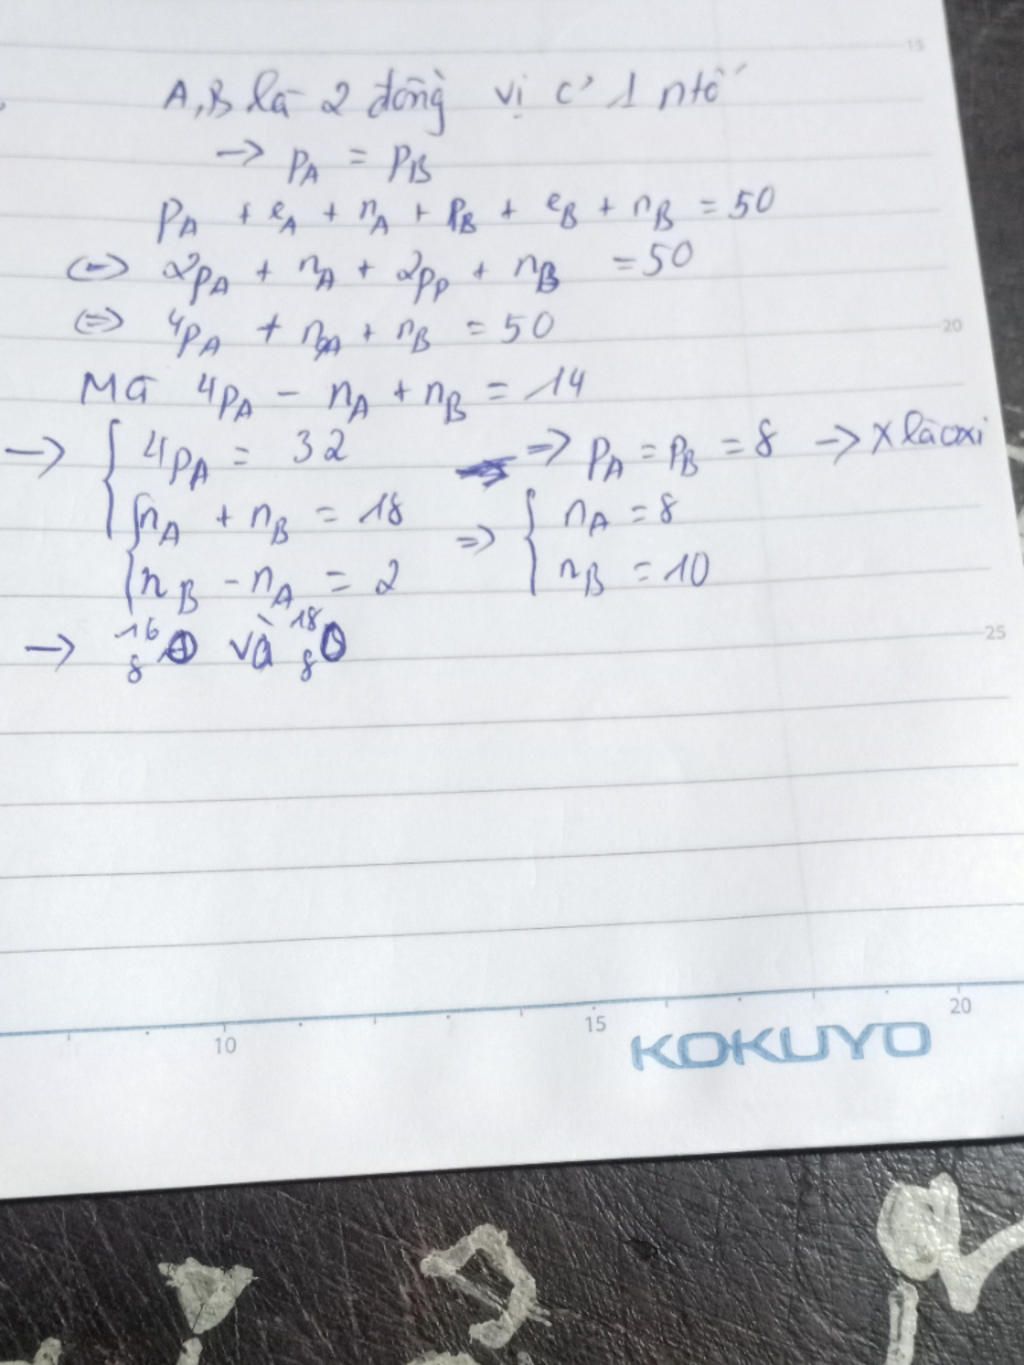 15
A,B là 2 đồng vị c' 1 ntố
→ pA = pB
pA + eA + nA + pB + eB + nB = 50
(=) 2pA + nA + 2pp + nB = 50
(=) 4pA + nA + nB = 50
20
Mà 4pA - nA + nB = 14
→ { 4pA = 32 => pA = pB = 8 → X là oxi
{ nA + nB = 18 => { nA = 8
nB - nA = 2 nB = 10
→ ¹⁶₈O và ¹⁸₈O
25
10 15 20
KOKUYO